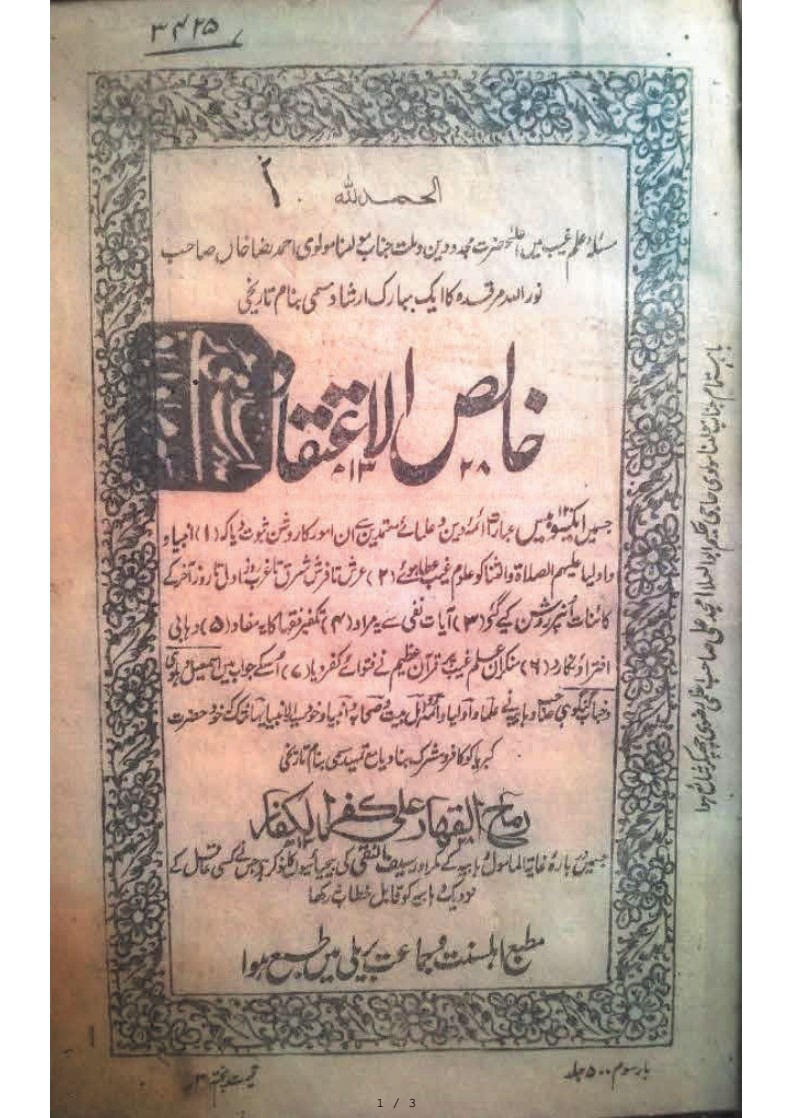 ۳۴۲۵
الحمدللہ
مسئلۂ علم غیب میں اعلیٰحضرت مجدد دین و ملت جناب مولٰنا مولوی احمد رضا خاں صاحب
نور اللہ مرقدہ کا ایک مبارک ارشاد مسمی بنام تاریخی
خالص الاعتقاد
۱۳۲۸ھ
جسمیں ایکسو بیس عبارات ائمۂ دین و علمائے معتمدین سے ان امور کا روشن ثبوت دیا کہ (۱) انبیا و
اولیا علیہم الصلاۃ والثنا کو علوم غیب عطا ہوئے (۲) عرش تا فرش شرق تا غرب روز اول تا روز آخر کے
کائنات اُنپر روشن کیے گئے (۳) آیات نفی سے یہ مراد (۴) تکفیر فقہا کا یہ مفاد (۵) وہابی
افترا و عناد (۶) منکران علم غیب پر قرآن عظیم نے فتوائے کفر دیا (۷) اُسکے جواب میں اسمعیل دہلوی
و جناب گنگوہی وہابیہ نے علما و اولیا و ائمہ و اہل بیت و صحابہ و انبیا و خود سید الانبیا یہانتک کہ خود حضرت
کبریا کو کافر و مشرک بنا دیا مع تمہید مسمی بنام تاریخی
رماح القہار علی کفر الکفار
جسمیں غایۃ المامول وہابیہ کے مکر اور سیف النقی کی بیحیائیوں کا ذکر ہے جس نے کسی عاقل کے
نزدیک وہابیہ کو قابل خطاب نہ رکھا
مطبع اہلسنت و جماعت بریلی میں طبع ہوا
باہتمام جناب مولٰنا مولوی حاجی حکیم ابو العلا امجد علی صاحب اعظمی رضوی چھپکر شائع ہوا
بار سوم ۵۰۰ جلد
قیمت پختہ ۳
1 / 3